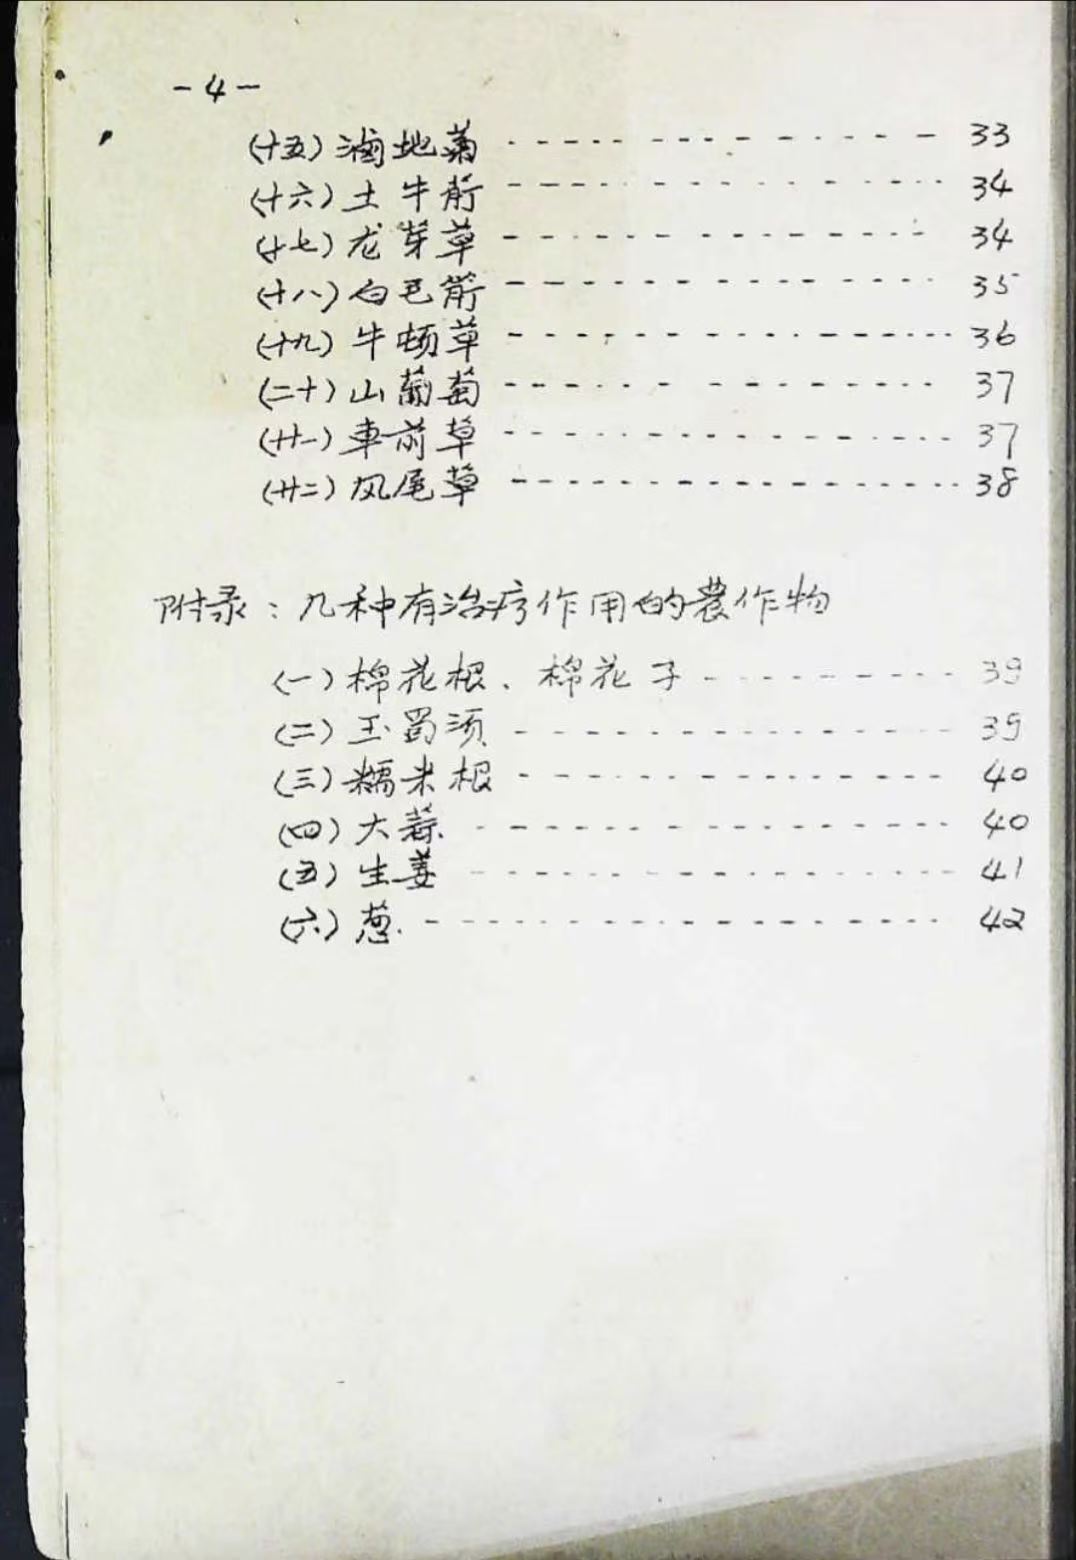 -4-
(十五) 滷地菊 ------------ 33
(十六) 土牛荕 ------------ 34
(十七) 龙芽草 ------------ 34
(十八) 白毛 ------------ 35
(十九) 牛顿草 ------------ 36
(二十) 山葡萄 ------------ 37
(廿一) 車前草 ------------ 37
(廿二) 凤尾草 ------------ 38
附录：几种有治疗作用的農作物
(一) 棉花根、棉花子 ------------ 39
(二) 玉蜀须 ------------ 39
(三) 糯米根 ------------ 40
(四) 大蒜 ------------ 40
(五) 生姜 ------------ 41
(六) 葱 ------------ 42